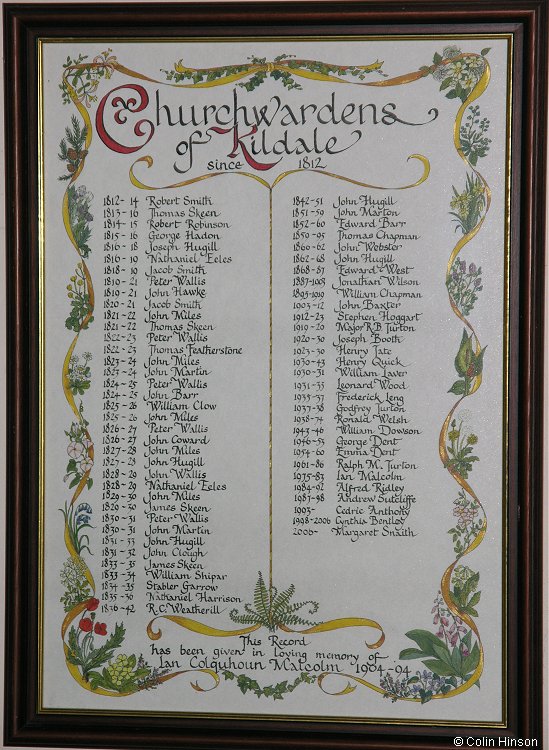 Churchwardens
of Kildale
since 1812
1812-14 Robert Smith
1813-16 Thomas Skeen
1814-15 Robert Robinson
1815-16 George Hadon
1816-18 Joseph Hugill
1816-19 Nathaniel Eeles
1818-19 Jacob Smith
1819-21 Peter Wallis
1819-21 John Hawke
1820-21 Jacob Smith
1821-22 John Miles
1821-22 Thomas Skeen
1822-23 Peter Wallis
1822-23 Thomas Featherstone
1823-24 John Miles
1823-24 John Martin
1824-25 Peter Wallis
1824-25 John Barr
1825-26 William Clow
1825-26 John Miles
1826-27 Peter Wallis
1826-27 John Coward
1827-28 John Miles
1827-28 John Hugill
1828-29 John Wallis
1828-29 Nathaniel Eeles
1829-30 John Miles
1829-30 James Skeen
1830-31 Peter Wallis
1830-31 John Martin
1831-33 John Hugill
1831-32 John Clough
1833-35 James Skeen
1833-34 William Shipar
1834-35 Stabler Garrow
1835-36 Nathaniel Harrison
1836-42 R.C. Weatherill
1842-51 John Hugill
1851-59 John Marton
1852-60 Edward Barr
1859-95 Thomas Chapman
1860-62 John Webster
1862-68 John Hugill
1868-87 Edward West
1887-1903 Jonathan Wilson
1895-1919 William Chapman
1903-12 John Baxter
1912-23 Stephen Hoggart
1919-20 Major R.B. Turton
1920-30 Joseph Booth
1923-30 Henry Tate
1930-43 Henry Quick
1930-31 William Laver
1931-33 Leonard Wood
1933-37 Frederick Leng
1937-38 Godfrey Turton
1938-74 Ronald Welsh
1943-46 William Dowson
1946-53 George Dent
1954-60 Emma Dent
1961-86 Ralph M. Turton
1975-83 Ian Malcolm
1984-92 Alfred Ridley
1987-98 Andrew Sutcliffe
1993- Cedric Anthony
1998-2006 Cynthia Bentley
2006- Margaret Snaith
This Record
has been given in loving memory of
Ian Colquhoun Malcolm 1904-94
© Colin Hinson